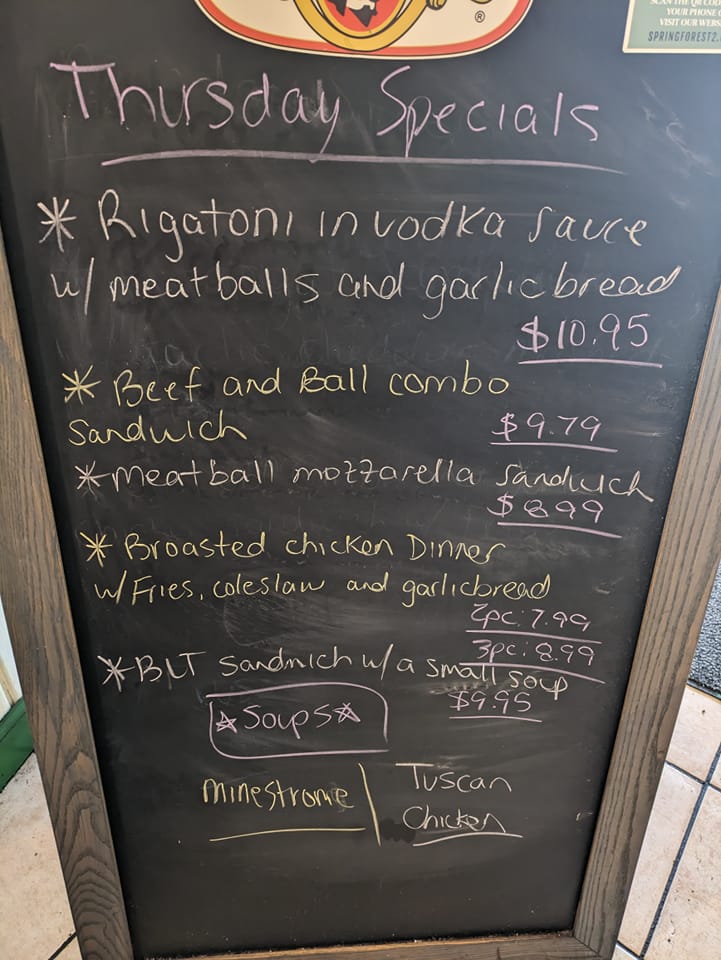 ®
SCAN THE QR CODE
YOUR PHONE
VISIT OUR
SPRINGFOREST2.
Thursday Specials
* Rigatoni in vodka sauce
w/ meatballs and garlic bread
$10.95
* Beef and Ball combo
Sandwich $9.79
* Meatball mozzarella sandwich
$8.99
* Broasted chicken Dinner
w/ Fries, coleslaw and garlicbread
2pc: 7.99
3pc: 8.99
* BLT Sandwich w/ a small soup
$9.95
☆ Soups ☆
minestrone | Tuscan
Chicken